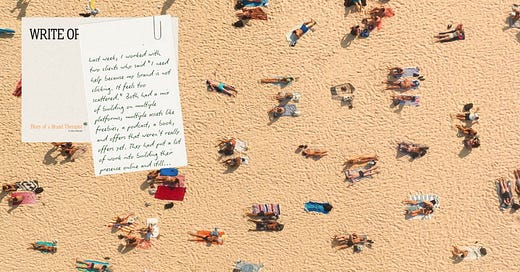 WRITE OF
Diary of a Brand Therapist
Last week, I worked with
two clients who said "I need
help because my brand is not
clicking. It feels too
scattered." Both had a mix
of building on multiple
platforms, multiple assets like
freebies, a podcast, a book,
and offers that weren't really
offers yet. They had put a lot
of work into building their
presence online and still...